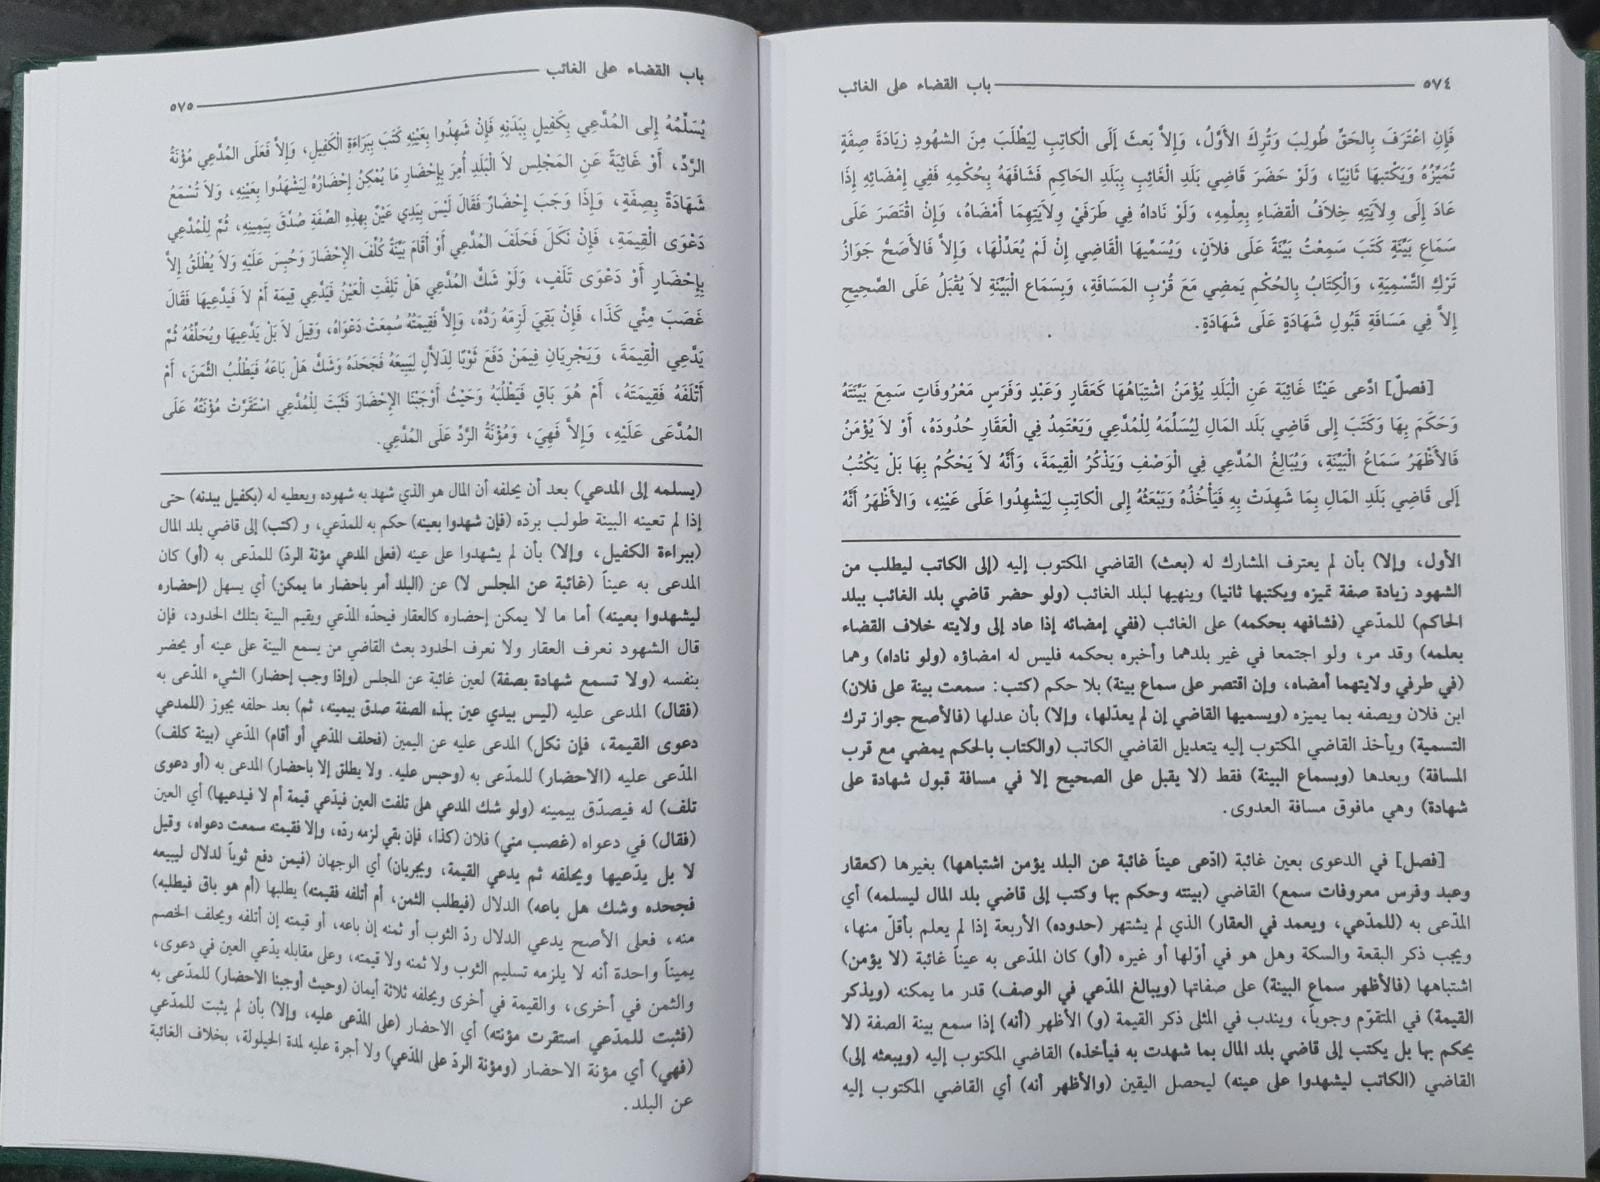 ٥٧٤ باب القضاء على الغائب
فَإِنِ اعْتَرَفَ بِالحَقِّ طُولِبَ وَتُرِكَ الأَوَّلُ، وَإِلاَّ بَعَثَ إِلَى الكاتِبِ لِيَطْلُبَ مِنَ الشهُودِ زِيَادَةَ صِفَةٍ
تُمَيِّزُهُ وَيَكْتبهَا ثَانِيًا، وَلَوْ حَضَرَ قَاضِي بَلَدِ الْغَائِبِ بِبَلَدِ الحَاكِمِ فَشَافَهَهُ بِحُكْمِهِ فَفِي إِمْضَائِهِ إِذَا
عَادَ إِلَى وِلاَيَتِهِ خِلاَفُ الْقَضَاءِ بِعِلْمِهِ، وَلَوْ نَادَاهُ فِي طَرَفَيْ وِلاَيَتِهِمَا أَمْضَاهُ، وَإِنْ اقْتَصَرَ عَلَى
سَمَاعِ بَيِّنَةٍ كَتَبَ سَمِعْتُ بَيِّنَةً عَلَى فلاَنٍ، وَيُسَمِّيهَا الْقَاضِي إِنْ لَمْ يُعَدِّلْهَا، وَإِلاَّ فَالأَصَحُّ جَوَازُ
تَرْكِ التَّسْمِيَةِ، وَالْكِتَابُ بِالحُكْمِ يَمضِي مَعَ قُرْبِ المَسَافَةِ، وَبِسَمَاعِ الْبَيِّنَةِ لاَ يُقْبَلُ عَلَى الصَّحِيحِ
إِلاَّ فِي مَسَافَةِ قَبُولِ شَهَادَةٍ عَلَى شَهَادَةٍ.
[فصلٌ] ادَّعى عَيْنًا غَائِبَةً عَنِ الْبَلَدِ يُؤْمَنُ اشْتِبَاهُهَا كَعَقَارٍ وَعَبْدٍ وَفَرَسٍ مَعْرُوفَاتٍ سَمِعَ بَيِّنَتَهُ
وَحَكَمَ بِهَا وَكَتَبَ إِلَى قَاضِي بَلَدِ المَالِ لِيُسَلِّمَهُ لِلْمُدَّعِي وَيَعْتَمِدُ فِي الْعَقَارِ حُدُودَهُ، أَوْ لاَ يُؤْمَنُ
فَالأَظْهَرُ سَمَاعُ الْبَيِّنَةِ، وَيُبَالِغُ المُدَّعِي فِي الْوَصْفِ وَيَذْكُرُ الْقِيمَةَ، وَأَنَّهُ لاَ يَحْكُمُ بِهَا بَلْ يَكْتُبُ
إِلَى قَاضِي بَلَدِ المَالِ بِمَا شَهِدَتْ بِهِ فَيَأْخُذُهُ وَيَبْعَثُهُ إِلَى الْكَاتِبِ لِيَشْهَدُوا عَلَى عَيْنِهِ، وَالأَظْهَرُ أَنَّهُ
الأول، وإلا) بأن لم يعترف المشارك له (بعث) القاضي المكتوب إليه (إلى الكاتب ليطلب من
الشهود زيادة صفة تميزه ويكتبها ثانيا) وينهيها لبلد الغائب (ولو حضر قاضي بلد الغائب ببلد
الحاكم) للمدّعي (فشافهه بحكمه) على الغائب (ففي إمضائه إذا عاد إلى ولايته خلاف القضاء
بعلمه) وقد مر، ولو اجتمعا في غير بلدهما وأخبره بحكمه فليس له امضاؤه (ولو ناداه) وهما
(في طرفي ولايتهما أمضاه، وإن اقتصر على سماع بينة) بلا حكم (كتب: سمعت بينة على فلان)
ابن فلان ويصفه بما يميزه (ويسميها القاضي إن لم يعدّلها، وإلا) بأن عدلها (فالأصح جواز ترك
التسمية) ويأخذ القاضي المكتوب إليه بتعديل القاضي الكاتب (والكتاب بالحكم يمضي مع قرب
المسافة) وبعدها (وبسماع البينة) فقط (لا يقبل على الصحيح إلا في مسافة قبول شهادة على
شهادة) وهي مافوق مسافة العدوى.
[فصل] في الدعوى بعين غائبة (ادّعى عيناً غائبة عن البلد يؤمن اشتباهها) بغيرها (كعقار
وعبد وفرس معروفات سمع) القاضي (بينته وحكم بها وكتب إلى قاضي بلد المال ليسلمه) أي
المدّعي به (للمدّعي، ويعمد في العقار) الذي لم يشتهر (حدوده) الأربعة إذا لم يعلم بأقلّ منها،
ويجب ذكر البقعة والسكة وهل هو في أوّلها أو غيره (أو) كان المدّعى به عيناً غائبة (لا يؤمن)
اشتباهها (فالأظهر سماع البينة) على صفاتها (ويبالغ المدّعي في الوصف) قدر ما يمكنه (ويذكر
القيمة) في المتقوّم وجوباً، ويندب في المثلى ذكر القيمة (و) الأظهر (أنه) إذا سمع بينة الصفة (لا
يحكم بها بل يكتب إلى قاضي بلد المال بما شهدت به فيأخذه) القاضي المكتوب إليه (ويبعثه إلى)
القاضي (الكاتب ليشهدوا على عينه) ليحصل اليقين (والأظهر أنه) أي القاضي المكتوب إليه
باب القضاء على الغائب ٥٧٥
يُسَلِّمُهُ إِلى المُدَّعِي بِكَفِيلٍ بِبَدَنِهِ فَإِنْ شَهِدُوا بِعَيْنِهِ كَتَبَ بِبَرَاءَةِ الْكَفِيلِ، وَإِلاَّ فَعَلَى المُدَّعِي مُؤْنَةُ
الرَّدِّ، أَوْ غَائِبَةً عَنِ المَجْلِسِ لاَ الْبَلَدِ أُمِرَ بِإِحْضَارِ مَا يُمْكِنُ إِحْضَارُهُ لِيَشْهَدُوا بِعَيْنِهِ، وَلاَ تُسْمَعُ
شَهَادَةٌ بِصِفَةٍ، وَإِذَا وَجَبَ إِحْضَارٌ فَقَالَ لَيْسَ بِيَدِي عَيْنٌ بِهذِهِ الصِّفَةِ صُدِّقَ بِيَمِينِهِ، ثُمَّ لِلْمُدَّعِي
دَعْوَى الْقِيمَةِ، فَإِنْ نَكَلَ فَحَلَفَ المُدَّعِي أَوْ أَقَامَ بَيِّنَةً كُلِّفَ الإِحْضَارَ وَحُبِسَ عَلَيْهِ وَلاَ يُطْلَقُ إِلاَّ
بِإِحْضَارٍ أَوْ دَعْوَى تَلَفٍ، وَلَوْ شَكَّ المُدَّعِي هَلْ تَلِفَتِ الْعَيْنُ فَيَدَّعِي قِيمَةً أَمْ لاَ فَيَدَّعِيهَا فَقَالَ
غَصَبَ مِنِّي كَذَا، فَإِنْ بَقِيَ لَزِمَهُ رَدُّهُ، وَإِلاَّ فَقِيمَتُهُ سُمِعَتْ دَعْوَاهُ، وَقِيلَ لاَ بَلْ يَدَّعِيهَا وَيُحَلِّفُهُ ثُمَّ
يَدَّعِي الْقِيمَةَ، وَيَجْرِيَانِ فِيمَنْ دَفَعَ ثَوْبًا لِدَلاَّلٍ لِيَبِيعَهُ فَجَحَدَهُ وَشَكَّ هَلْ بَاعَهُ فَيَطْلُبُ الثَّمَنَ، أَمْ
أَتْلَفَهُ فَقِيمَتَهُ، أَمْ هُوَ بَاقٍ فَيَطْلُبُهُ وَحَيْثُ أَوْجَبْنَا الإِحْضَارَ فَثَبَتَ لِلْمُدَّعِي اسْتَقَرَّتْ مُؤْنَتُهُ عَلَى
المُدَّعَى عَلَيْهِ، وَإِلاَّ فَهِيَ، وَمُؤْنَةُ الرَّدِّ عَلَى المُدَّعِي.
(يسلمه إلى المدعي) بعد أن يحلفه أن المال هو الذي شهد به شهوده ويعطيه له (بكفيل ببدنه) حتى
إذا لم تعينه البينة طولب بردّه (فإن شهدوا بعينه) حكم به للمدّعي، و (كتب) إلى قاضي بلد المال
(ببراءة الكفيل، وإلا) بأن لم يشهدوا على عينه (فعلى المدعي مؤنة الردّ) للمدعى به (أو) كان
المدعى به عيناً (غائبة عن المجلس لا) عن (البلد أمر باحضار ما يمكن) أي يسهل (إحضاره
ليشهدوا بعينه) أما ما لا يمكن إحضاره كالعقار فيحدّه المدّعي ويقيم البينة بتلك الحدود، فإن
قال الشهود نعرف العقار ولا نعرف الحدود بعث القاضي من يسمع البينة على عينه أو يحضر
بنفسه (ولا تسمع شهادة بصفة) لعين غائبة عن المجلس (وإذا وجب إحضار) الشيء المدّعى به
(فقال) المدعى عليه (ليس بيدي عين بهذه الصفة صدق بيمينه، ثم) بعد حلفه يجوز (للمدعي
دعوى القيمة، فإن نكل) المدعى عليه عن اليمين (فحلف المدّعي أو أقام) المدّعي (بينة كلف)
المدّعى عليه (الاحضار) للمدّعى به (وحبس عليه. ولا يطلق إلا باحضار) المدعى به (أو دعوى
تلف) له فيصدّق بيمينه (ولو شك المدعي هل تلفت العين فيدّعي قيمة أم لا فيدعيها) أي العين
(فقال) في دعواه (غصب مني) فلان (كذا، فإن بقي لزمه ردّه، وإلا فقيمته سمعت دعواه، وقيل
لا بل يدّعيها ويحلفه ثم يدعي القيمة، ويجريان) أي الوجهان (فيمن دفع ثوباً لدلال ليبيعه
فجحده وشك هل باعه) الدلال (فيطلب الثمن، أم أتلفه فقيمته) يطلبها (أم هو باق فيطلبه)
منه، فعلى الأصح يدعي الدلال ردّ الثوب أو ثمنه إن باعه، أو قيمته إن أتلفه ويحلف الخصم
يميناً واحدة أنه لا يلزمه تسليم الثوب ولا ثمنه ولا قيمته، وعلى مقابله يدّعي العين في دعوى،
والثمن في أخرى، والقيمة في أخرى ويحلفه ثلاثة أيمان (وحيث أوجبنا الاحضار) للمدّعى به
(فثبت للمدّعي استقرت مؤنته) أي الاحضار (على المدّعى عليه، وإلا) بأن لم يثبت للمدّعي
(فهي) أي مؤنة الاحضار (ومؤنة الردّ على المدّعي) ولا أجرة عليه لمدة الحيلولة، بخلاف الغائبة
عن البلد.